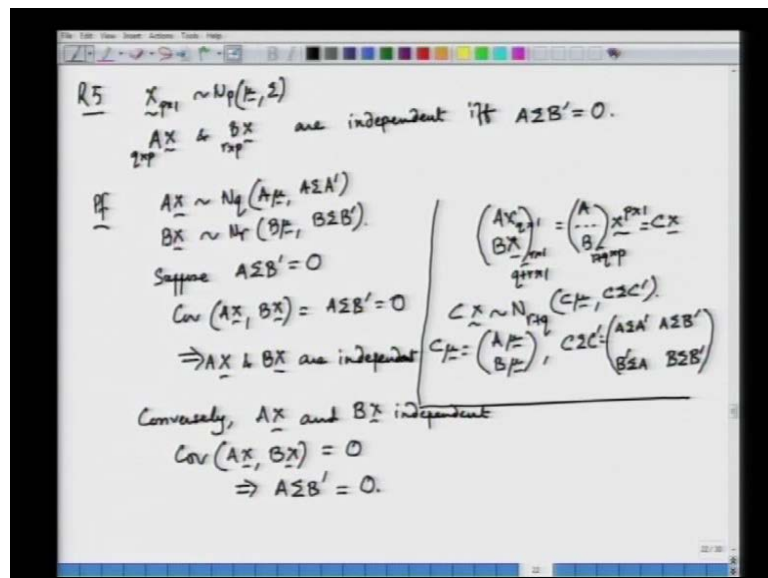 File Edit View Insert Actions Tools Help
R5 X̰ₚₓ₁ ~ Nₚ(μ̲, Σ)
AX̲ & BX̲ are independent iff AΣB' = 0.
qxp rxp
Pf AX̲ ~ Nq (Aμ̲, AΣA')
BX̲ ~ Nr (Bμ̲, BΣB').
Suppose AΣB' = 0
Cov (AX̲, BX̲) = AΣB' = 0
⇒ AX̲ & BX̲ are independent
(AX̲ qx1 BX̲ rx1) q+rx1 = (A --- B) r+qxp X̲ px1 = CX̲
CX̲ ~ N r+q (Cμ̲, CΣC').
Cμ̲ = (Aμ̲ Bμ̲), CΣC' = (AΣA' AΣB' B'ΣA BΣB')
Conversely, AX̲ and BX̲ independent
Cov (AX̲, BX̲) = 0
⇒ AΣB' = 0.
22/30
22